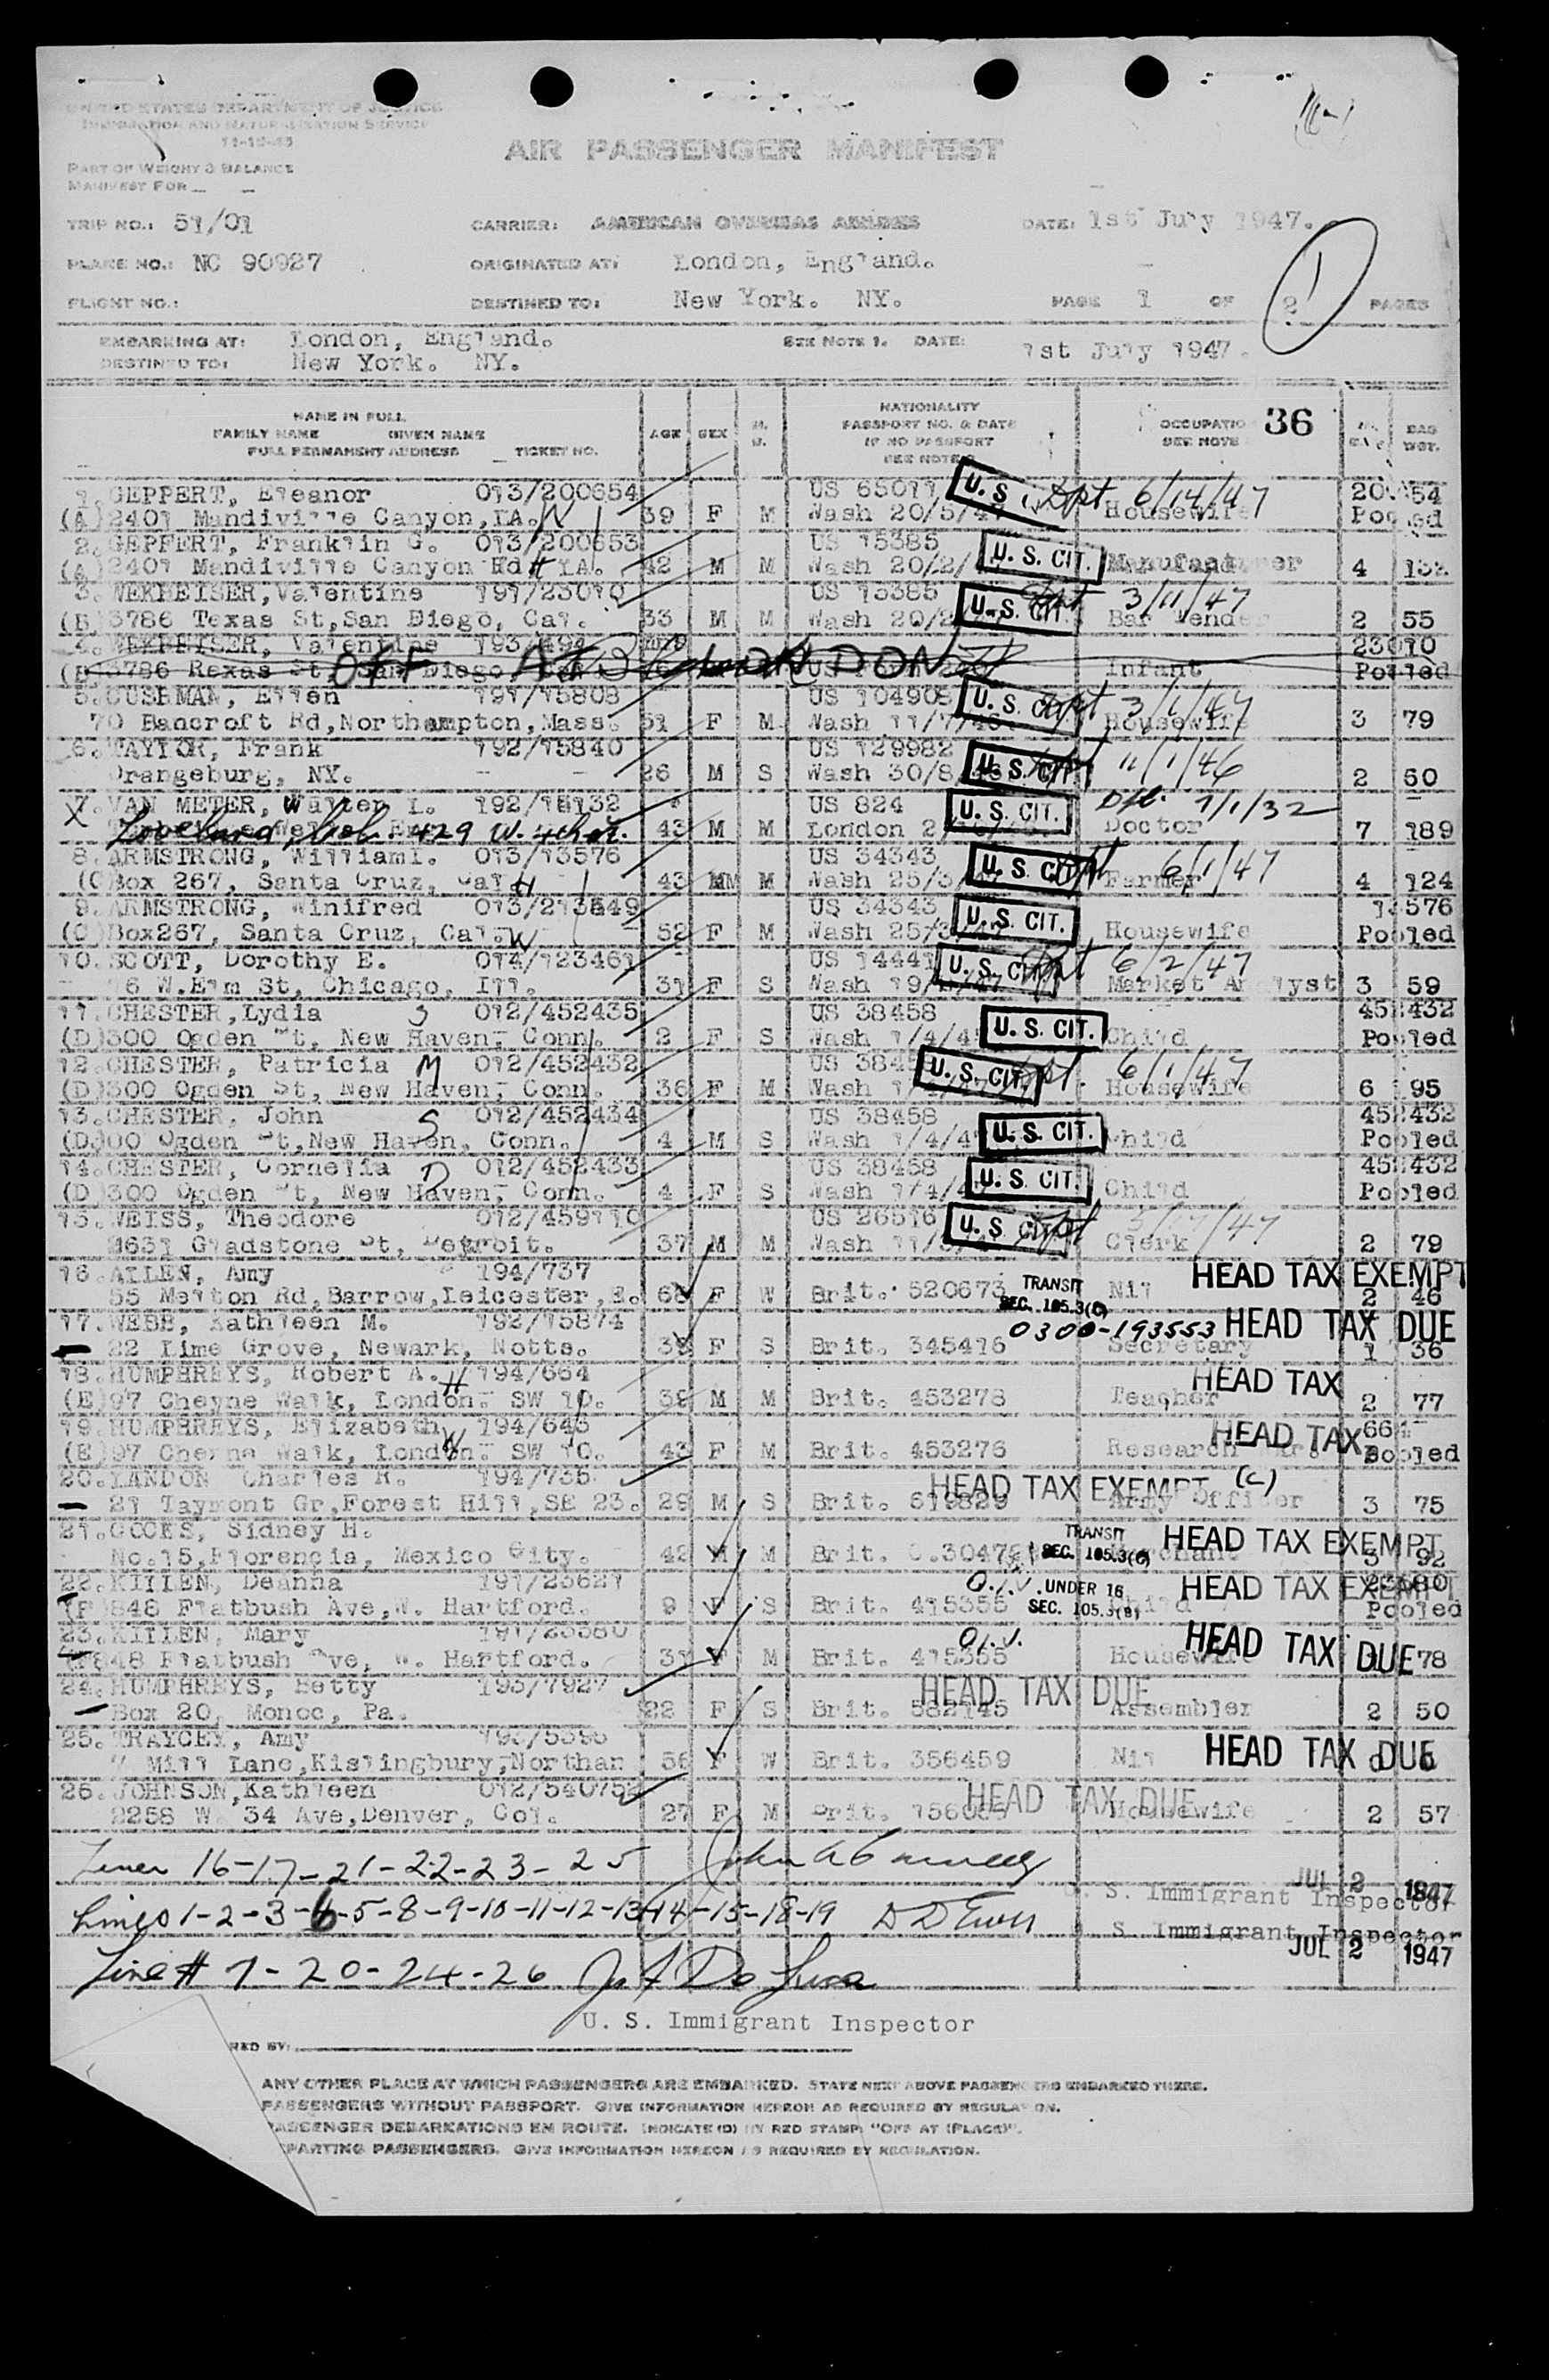 UNITED STATES DEPARTMENT OF JUSTICE
IMMIGRATION AND NATURALIZATION SERVICE
11-15-45
AIR PASSENGER MANIFEST
PART OF WEIGHT & BALANCE
MANIFEST FOR
TRIP NO.: 51/01 CARRIER: AMERICAN OVERSEAS AIRLINES DATE: 1st July 1947.
PLANE NO.: NC 90927 ORIGINATED AT: London, England.
FLIGHT NO.: DESTINED TO: New York. NY. PAGE 1 OF 2 PAGES
EMBARKING AT: London, England. SEE NOTE 1. DATE: 1st July 1947.
DESTINED TO: New York. NY.
NAME IN FULL
FAMILY NAME GIVEN NAME
FULL PERMANENT ADDRESS TICKET NO.
AGE SEX
NATIONALITY
PASSPORT NO. & DATE
IF NO PASSPORT
SEE NOTE
OCCUPATIO 36
SEE NOTE
BAG
WGT.
1. GEPPERT, Eleanor 013/200654 US U. S. Dpt 6/14/47
(A) 2401 Mandiville Canyon, LA. W 39 F M Wash 20/5/ Housewife Pooled
2. GEPPERT, Franklin G. 013/200653 US 15385 U. S. CIT.
(A) 2401 Mandiville Canyon Rd H LA. 42 M M Wash 20/2/ Manufacturer 4
3. WEKHEISER, Valentine 191/23010 US 15385 U. S. CIT. 3/11/47
(B) 3786 Texas St, San Diego, Cal. 33 M M Wash 20/2 Bar Tender 2 55
4. WEKHEISER, Valentine 193/494 23010
(B) 3786 Rexas St, San Diego OFF AT LONDON US Infant Pooled
5. CUSHMAN, Ellen 191/15808 US 104908 U. S. CIT. Dpt 3/1/47
70 Bancroft Rd, Northampton, Mass. 51 F M Wash 11/7/46 Housewife 3 79
6. TAYLOR, Frank 192/15840 US 129982 U. S. CIT. 11/1/46
Orangeburg, NY. 26 M S Wash 30/8 2 60
7. VAN METER, Walter L. 192/15132 US 824 U. S. CIT. 7/1/32
X Loveland, Col. 429 W. 4th St. 43 M M London 2 Doctor 7 189
8. ARMSTRONG, William. 013/13576 US 34343 U. S. CIT. Dpt 6/1/47
(C) Box 267, Santa Cruz, Cal H 43 M M Wash 25/3 Farmer 4 124
9. ARMSTRONG, Winifred 013/213549 US 34343 U. S. CIT. 13576
(C) Box267, Santa Cruz, Cal. W 52 F M Wash 25/3 Housewife Pooled
10. SCOTT, Dorothy E. 014/123461 US 14441 U. S. CIT. Dpt 6/2/47
16 W. Elm St, Chicago, Ill. 31 F S Wash 19/ Market Analyst 3 59
11. CHESTER, Lydia 012/452435 US 38458 U. S. CIT. 452432
(D) 300 Ogden St, New Haven, Conn. 2 F S Wash 1/4/4 Child Pooled
12. CHESTER, Patricia M 012/452432 US 3845 U. S. CIT. Dpt 6/1/47
(D) 300 Ogden St, New Haven, Conn. 36 F M Wash 1/ Housewife 6 95
13. CHESTER, John S 012/452434 US 38458 U. S. CIT. 452432
(D) 300 Ogden St, New Haven, Conn. 4 M S Wash 1/4/4 Child Pooled
14. CHESTER, Cornelia D 012/452433 US 38458 U. S. CIT. 452432
(D) 300 Ogden St, New Haven, Conn. 4 F S Wash 1/4/4 Child Pooled
15. WEISS, Theodore 012/459110 US 26516 U. S. CIT. Dpt 3/17/47
2631 Gladstone St, Detroit. 37 M M Wash 11/3/ Clerk 2 79
16. ALLEN, Amy 194/737 TRANSIT HEAD TAX EXEMPT
55 Melton Rd, Barrow, Leicester, E. F W Brit. 520673 SEC. 105.3(C) Nil 2 46
17. WEBB, Kathleen M. 192/15874 0300-193553 HEAD TAX DUE
22 Lime Grove, Newark, Notts. F S Brit. 345416 Secretary 1 36
18. HUMPHREYS, Robert A. H 194/664 HEAD TAX
(E) 97 Cheyne Walk, London. SW 10. 39 M M Brit. 453278 Teacher 2 77
19. HUMPHREYS, Elizabeth W 194/645 HEAD TAX 664
(E) 97 Cheyne Walk, London. SW 10. 43 F M Brit. 453276 Research Pooled
20. LANDON Charles R. 194/735 HEAD TAX EXEMPT (C)
21 Taymont Gr, Forest Hill, SE 23. 29 M S Brit. 619829 Army Officer 3 75
21. OCCKS, Sidney H. TRANSIT HEAD TAX EXEMPT
No.15, Florencia, Mexico City. 42 M M Brit. C.30478 SEC. 105.3(C) Merchant 3 92
22. KILLEN, Deanna 191/23621 O.I.V. UNDER 16 HEAD TAX EXEMPT
(F) 848 Flatbush Ave, W. Hartford. 9 F S Brit. 415355 SEC. 105.3(B) Child Pooled
23. KILLEN, Mary 191/23580 O.I.V. HEAD TAX DUE
(F) 848 Flatbush Ave, W. Hartford. 31 F M Brit. 415355 Housewife 78
24. HUMPHREYS, Betty 193/7927 HEAD TAX DUE
Box 20, Monoc, Pa. 22 F S Brit. 582145 Assembler 2 50
25. TRAYCEY, Amy 193/5595 HEAD TAX DUE
" Mill Lane, Kislingbury, Northan 56 F W Brit. 356459 Nil
26. JOHNSON, Kathleen HEAD TAX DUE
2258 W. 34 Ave, Denver, Col. 27 F M Brit. Housewife 2 57
Lines 16-17-21-22-23-25
JUL 2 1947
U. S. Immigrant Inspector
Lines 1-2-3-6-5-8-9-10-11-12-13-14-15-18-19
S. Immigrant Inspector
JUL 2 1947
Line # 7-20-24-26
U. S. Immigrant Inspector
RED BY:
ANY OTHER PLACE AT WHICH PASSENGERS ARE EMBARKED. STATE NEXT ABOVE PASSENGERS EMBARKED THERE.
PASSENGERS WITHOUT PASSPORT. GIVE INFORMATION HEREON AS REQUIRED BY REGULATION.
PASSENGER DEBARKATIONS EN ROUTE. INDICATE (D) BY RED STAMP "OFF AT (PLACE)".
PARTING PASSENGERS. GIVE INFORMATION HEREON AS REQUIRED BY REGULATION.